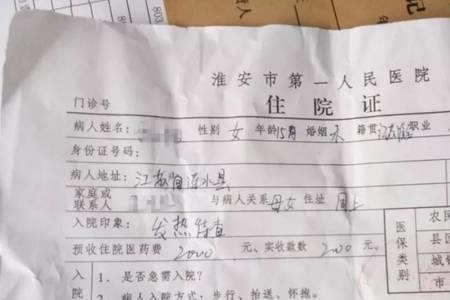 淮安市第一人民医院
住院证
门诊号
病人姓名: 性别 女 年龄 15月 婚姻 未 籍贯 江苏淮 职业
身份证号码:
病人地址: 江苏省涟水县
家庭或
联系人 与病人关系 母女 住址 同上
入院印象: 发热待查
预收住院医药费 2000 元、实收款数 2000 元。
入 1. 是否急需入院?
院 2. 病人入院方式: 步行、抬送、怀抱。
医
保
类
别
农民
县区
城镇
市